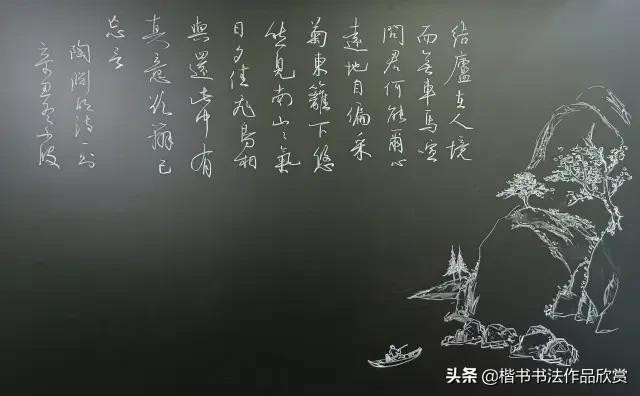 結廬在人境
而無車馬喧
問君何能爾心
遠地自偏采
菊東籬下悠
然見南山々氣
日夕佳飛鳥相
與還此中有
真意欲辯已
忘言
陶淵明詩一
辛丑
头条 @楷书书法作品欣赏